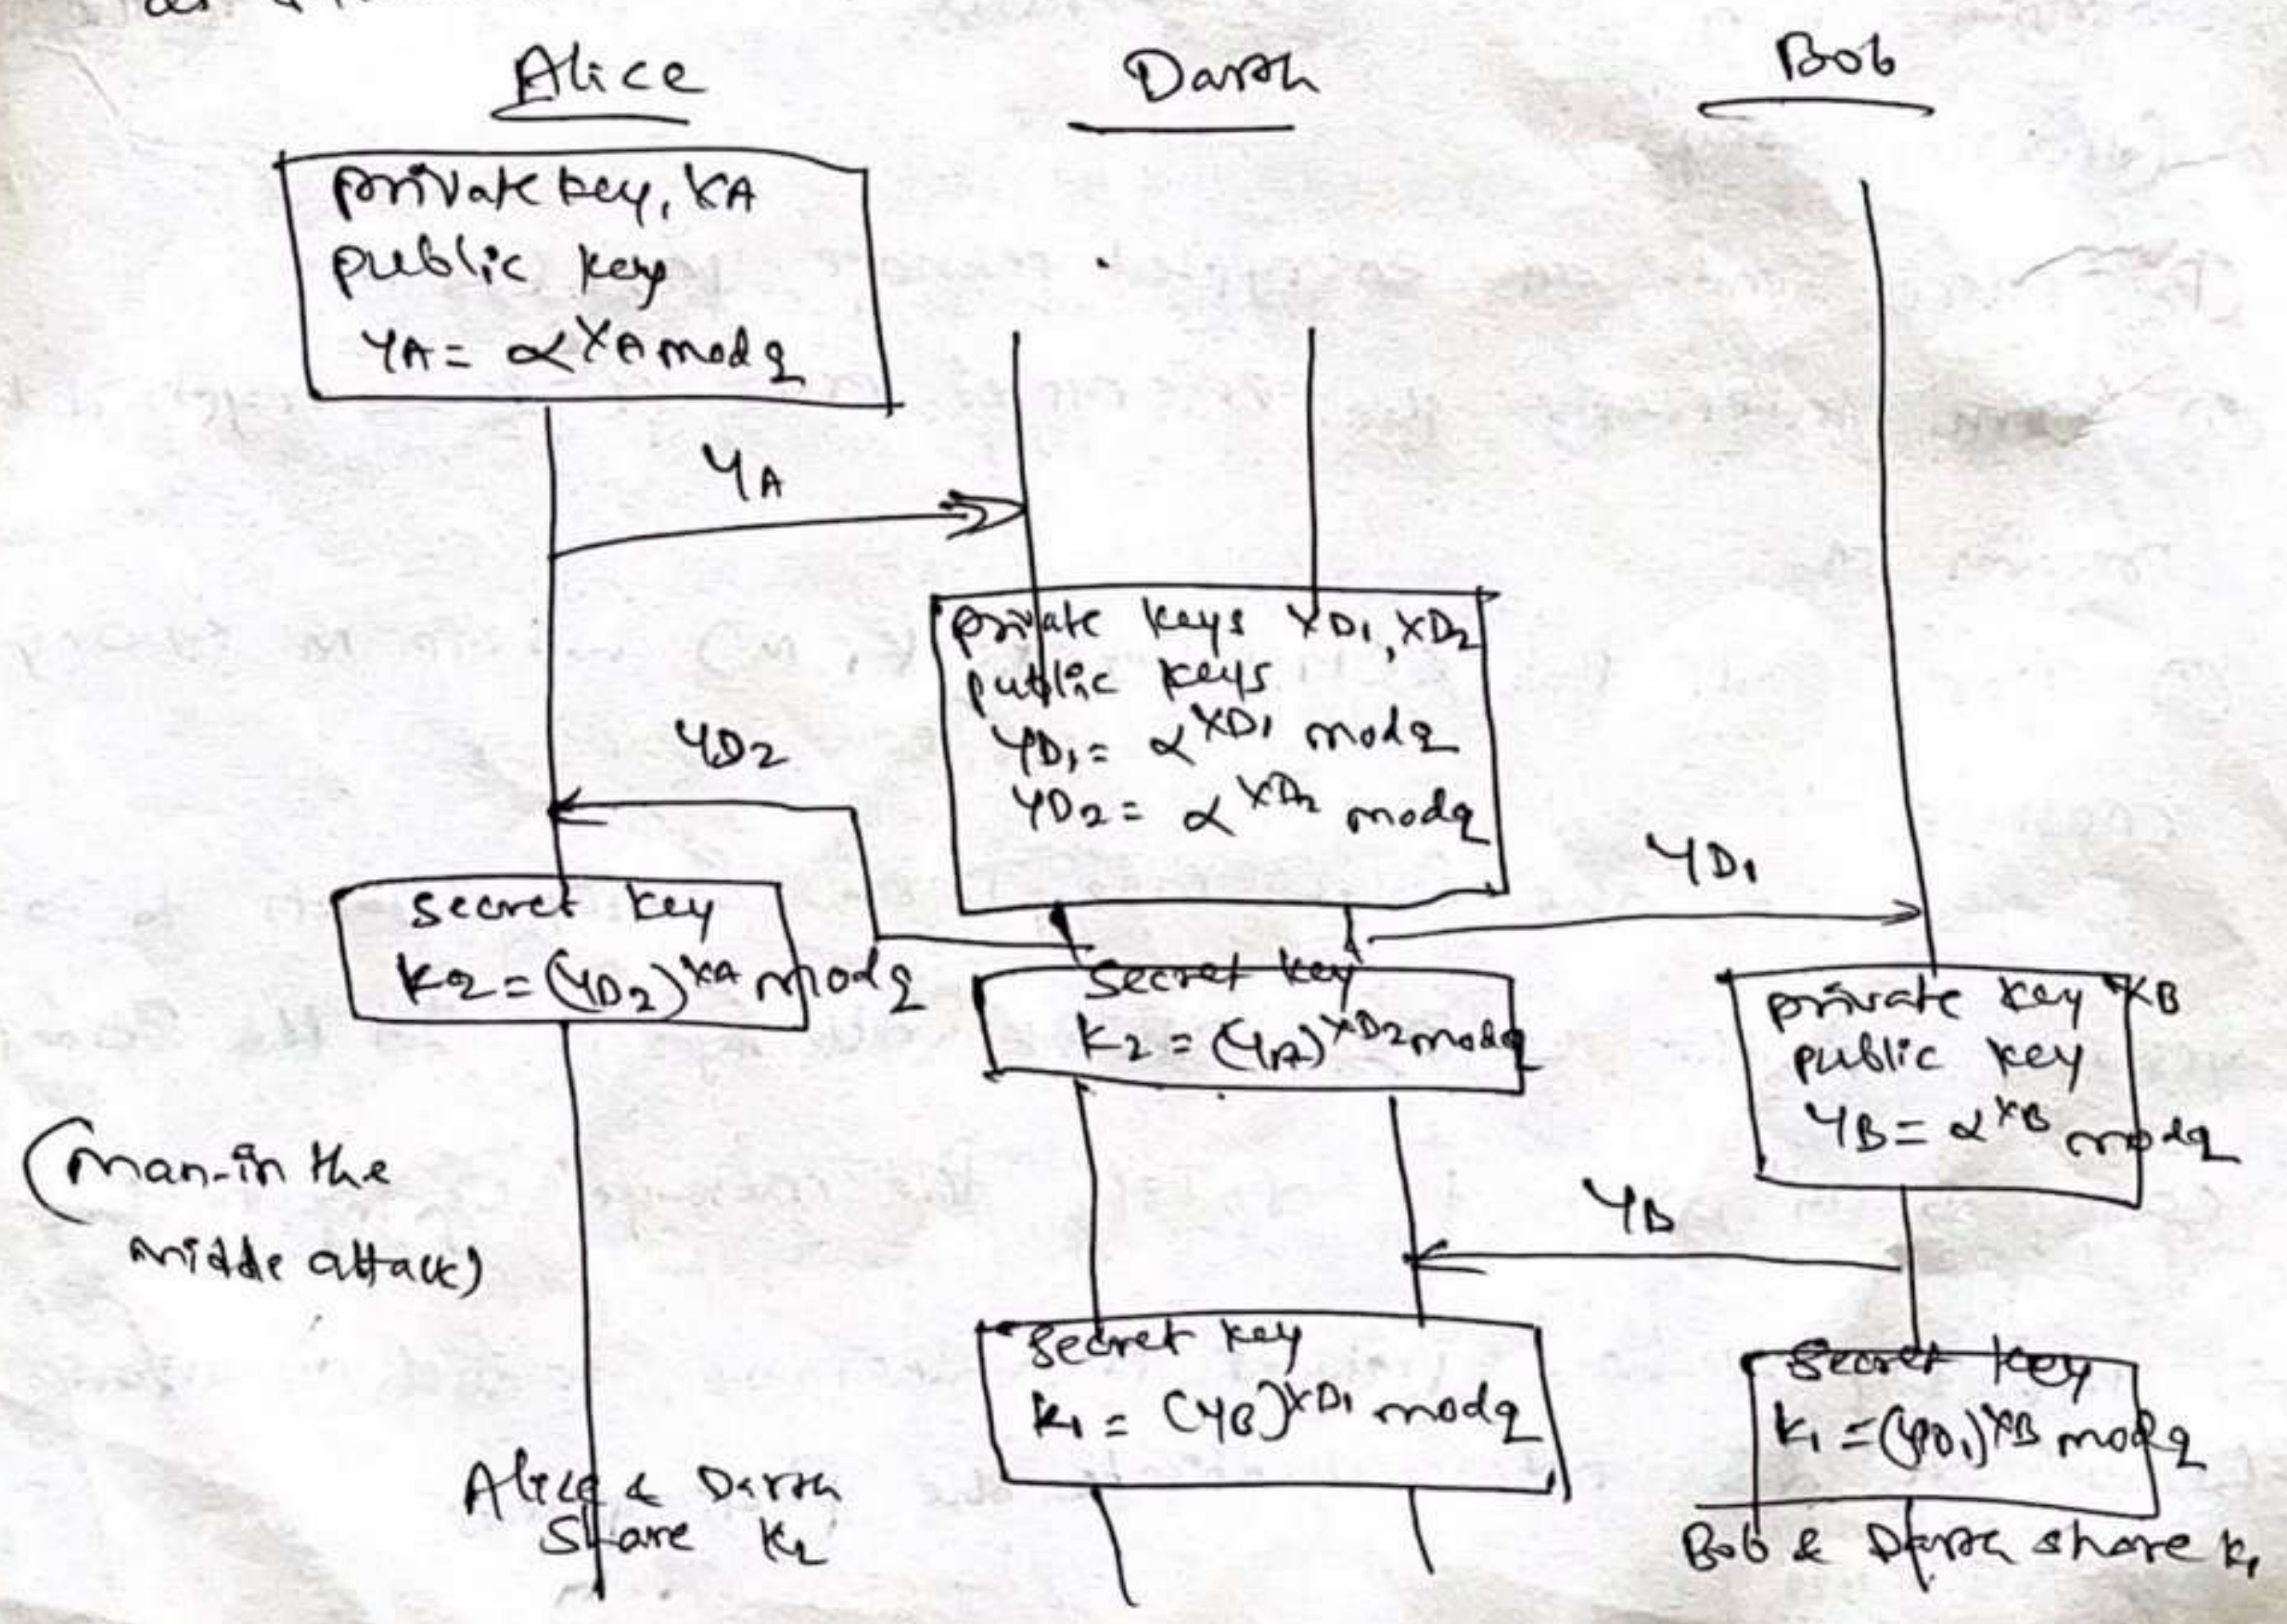 Alice
Darth
Bob
private key, XA
public key
YA = α^XA mod q
YA
private keys XD1, XD2
public keys
YD1 = α^XD1 mod q
YD2 = α^XD2 mod q
YD2
YD1
secret key
K2 = (YD2)^XA mod q
secret key
K2 = (YA)^XD2 mod q
private key XB
public key
YB = α^XB mod q
(man-in the
midde attack)
YB
secret key
K1 = (YB)^XD1 mod q
secret key
K1 = (YD1)^XB mod q
Alice & Darth
share K2
Bob & Darth share K1